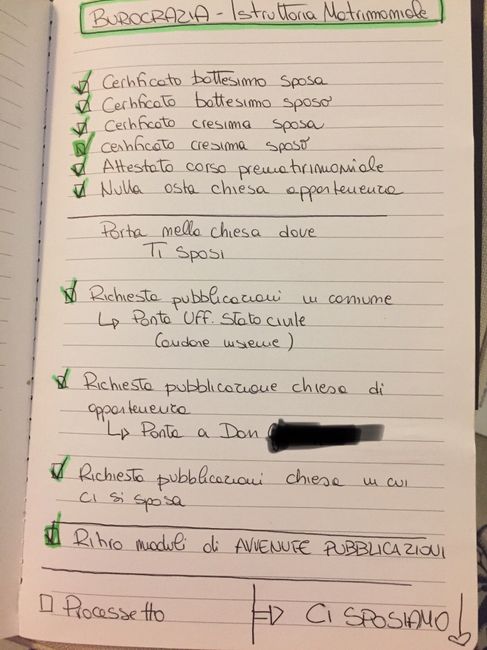 BUROCRAZIA - Istruttoria Matrimoniale
Certificato battesimo sposa
Certificato battesimo sposo
Certificato cresima sposa
Certificato cresima sposo
Attestato corso prematrimoniale
Nulla osta chiesa appartenenza
Porta nella chiesa dove
Ti sposi
Richiesta pubblicazioni in comune
↳ Porta Uff. Stato civile
(andare insieme)
Richiesta pubblicazione chiesa di
appartenenza
↳ Porta a Don
Richiesta pubblicazioni chiesa in cui
ci si sposa
Ritiro moduli di AVVENUTE PUBBLICAZIONI
Processetto ⇒ CI SPOSIAMO ↓